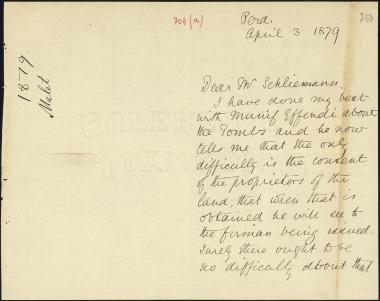 704 (a)
750
Pera.
April 3 1879
1879.
Malet
Dear Mr Schliemann.
I have done my best
with Munif Effendi about
the Tombs and he now
tells me that the only
difficulty is the consent
of the proprietors of the
land. that when that is
obtained he will see to
the firman being issued.
Surely there ought to be
no difficulty about that